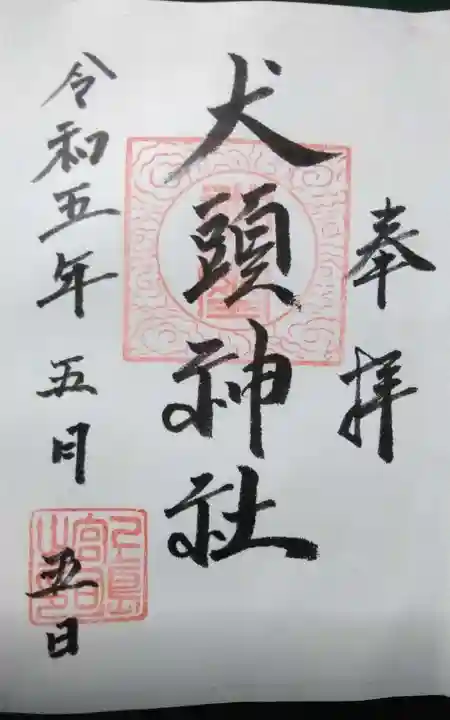 奉拝
犬頭神社
令和五年五月五日